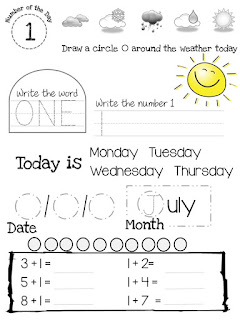 Number of the Day
1
Draw a circle O around the weather today
Write the word
ONE
Write the number 1
Today is Monday Tuesday
Wednesday Thursday
0/0/0 July
Date Month
3+1= 1+2=
5+1= 1+4=
8+1= 1+7 =